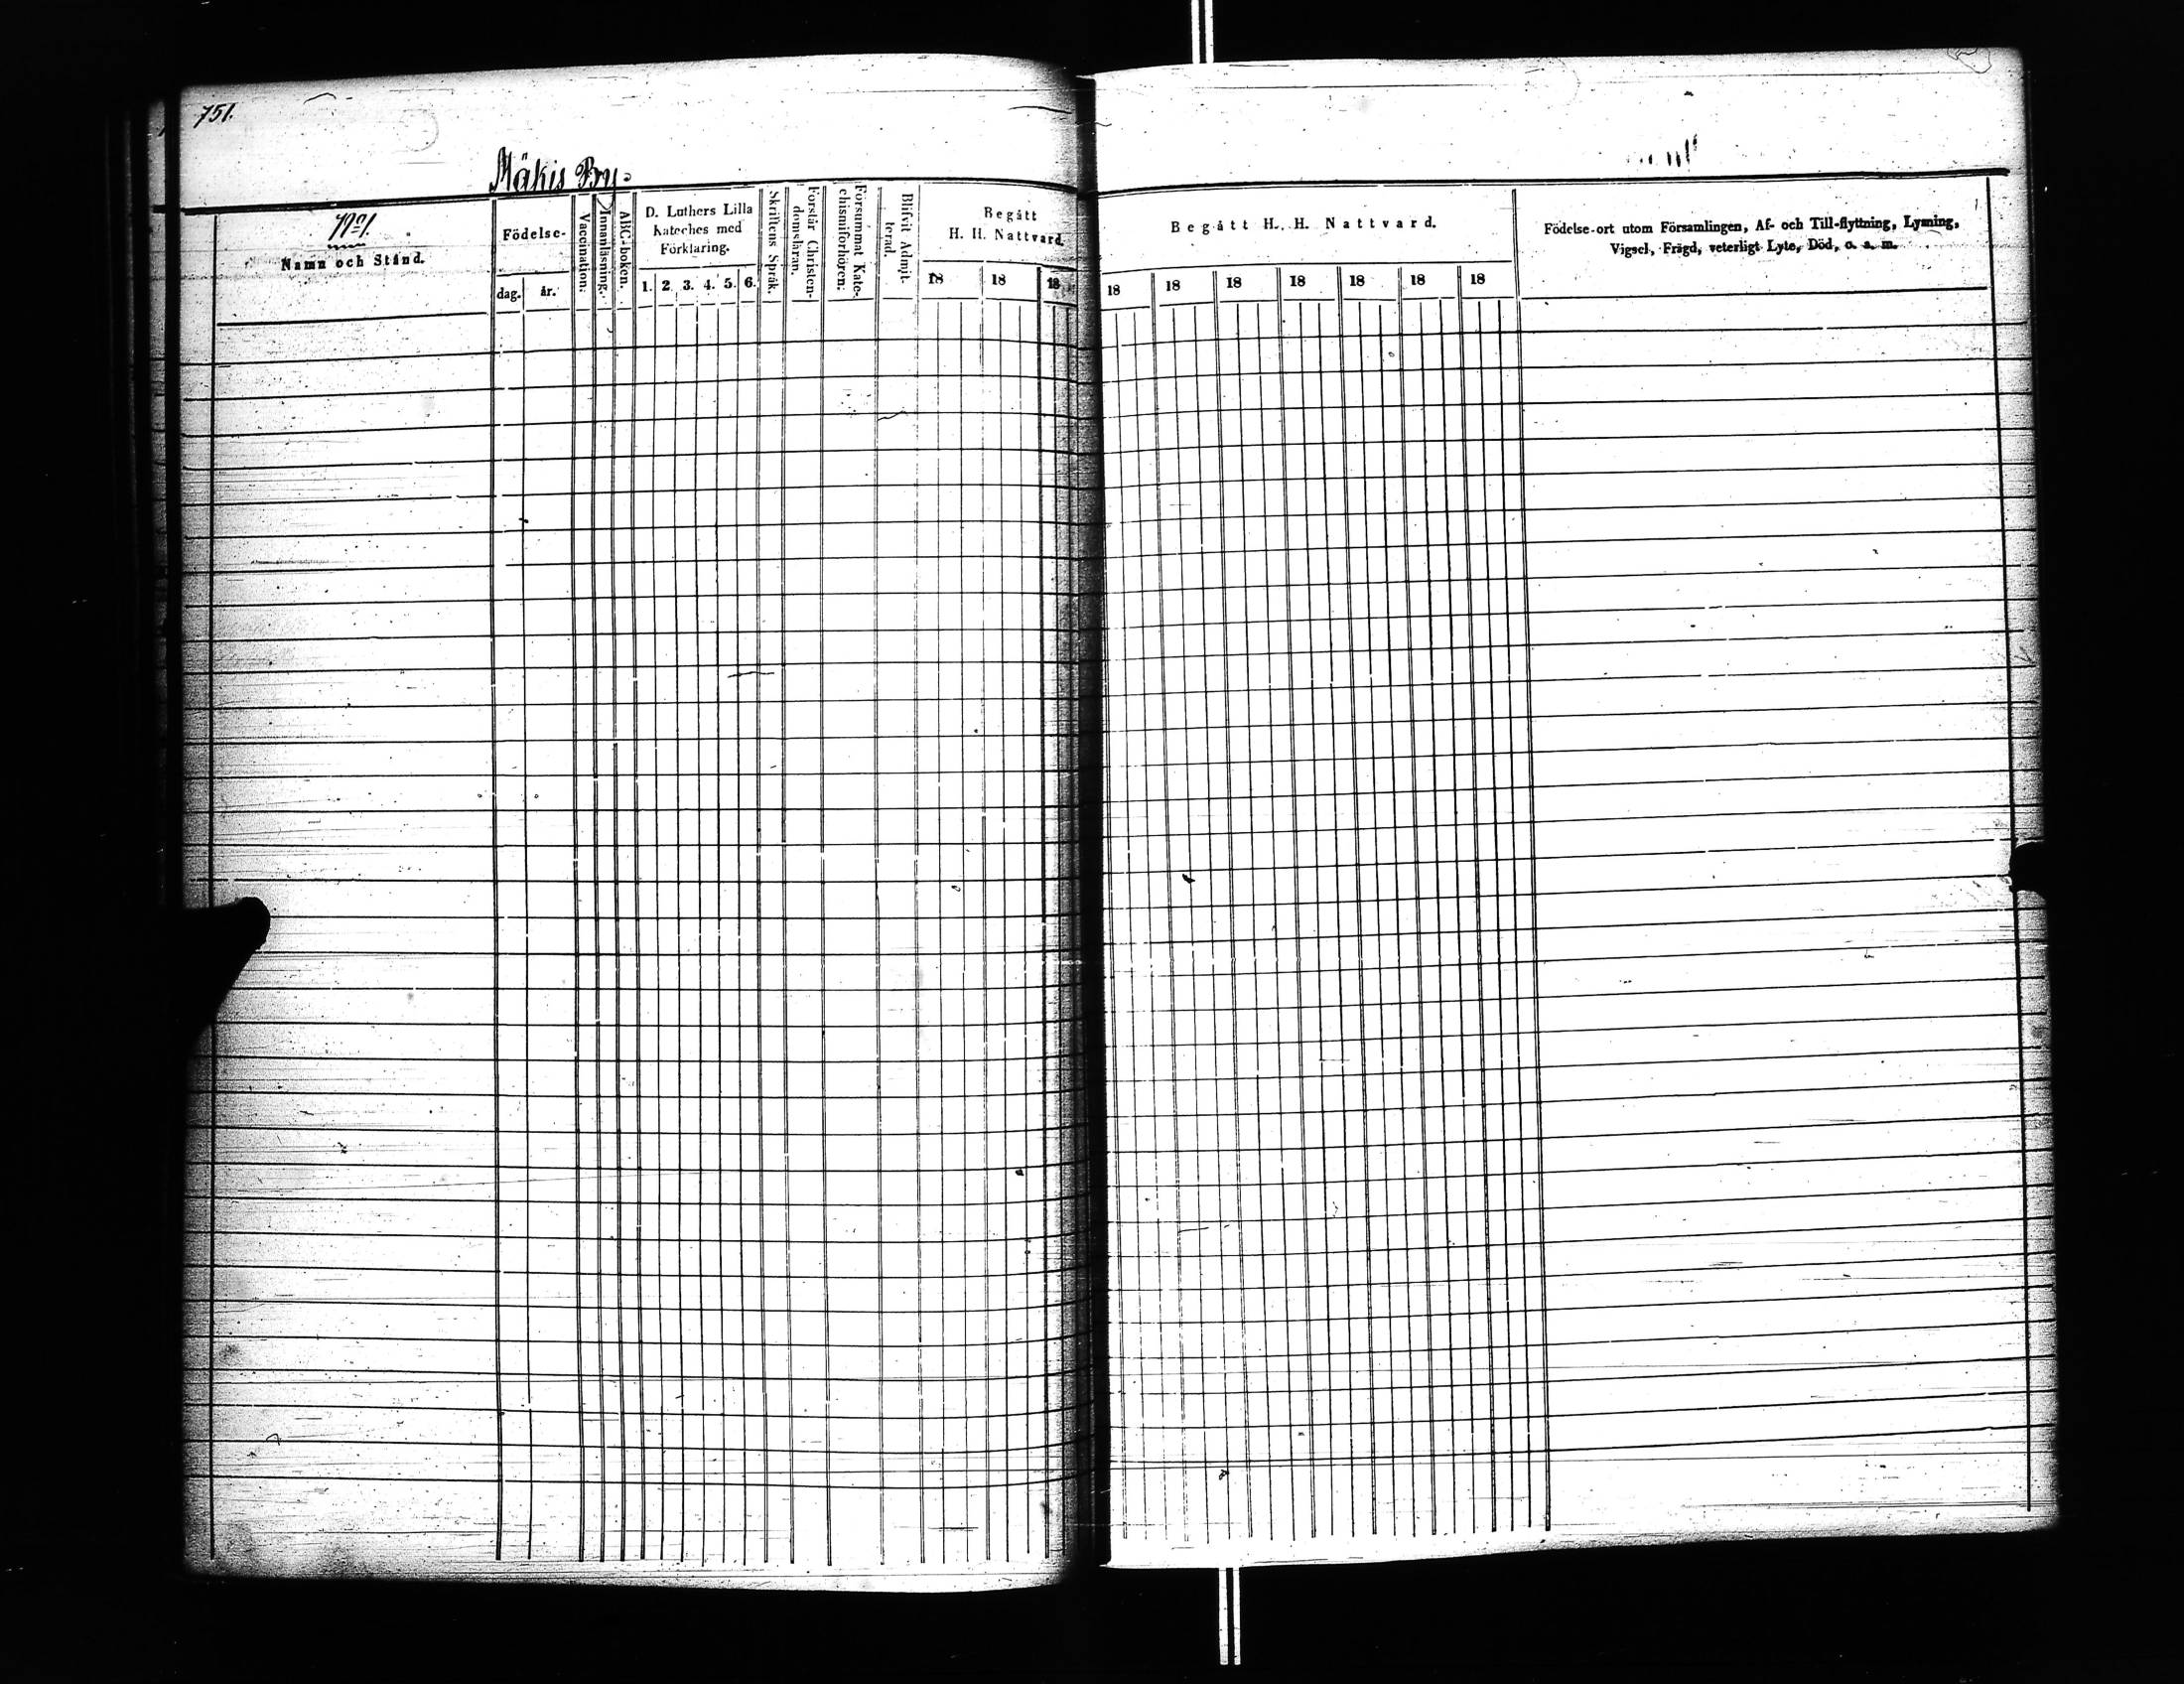 751.
Mäkis By.
No 1.
Namn och Stånd.
Födelse-
dag.
år.
Vaccination.
Innanläsning.
ABC-boken.
D. Luthers Lilla
Kateches med
Förklaring.
1. 2. 3. 4. 5. 6.
Skriftens Språk.
Förstår Christen-
domsläran.
Försummat Kate-
chismiförhören.
Blifvit Admit-
terad.
Begått
H. H. Nattvard.
18 18 18
Begått H. H. Nattvard.
18 18 18 18 18 18 18
Födelse-ort utom Församlingen, Af- och Till-flyttning, Lysning,
Vigsel, Frägd, veterligt Lyte, Död, o. s. m.